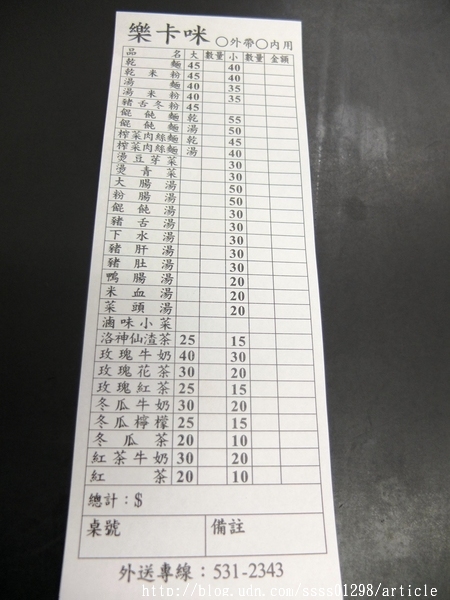 樂卡咪 ○外帶○內用
品名 大 數量 小 數量 金額
乾麵 45 40
乾米粉 45 40
湯麵 40 35
湯米粉 40 35
豬舌冬粉 45
餛飩麵乾 55
餛飩麵湯 50
榨菜肉絲麵乾 45
榨菜肉絲麵湯 40
燙豆芽菜 30
燙青菜 30
大腸湯 50
粉腸湯 50
餛飩湯 30
豬舌湯 30
下水湯 30
豬肝湯 30
豬肚湯 30
鴨腸湯 20
米血湯 20
菜頭湯 20
滷味小菜
洛神仙渣茶 25 15
玫瑰牛奶 40 30
玫瑰花茶 30 20
玫瑰紅茶 25 15
冬瓜牛奶 30 20
冬瓜檸檬 25 15
冬瓜茶 20 10
紅茶牛奶 30 20
紅茶 20 10
總計：$
桌號 備註
外送專線：531-2343
http://blog.udn.com/ssss01298/article